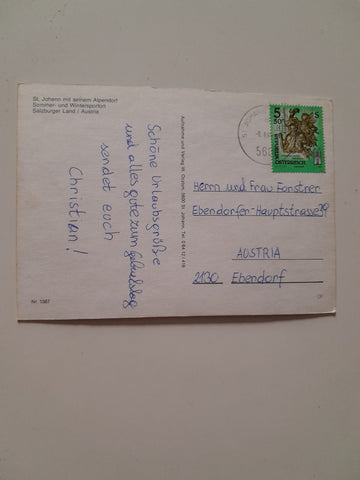 St. Johann mit seinem Alpendorf
Sommer- und Wintersportort
Salzburger Land / Austria
Schöne Urlaubsgrüße
und alles gute zum Geburtstag
sendet euch
Christian!
Nr. 1387
Aufnahme und Verlag 5600 St. Johann, Tel. 064 12 / 419
5 S
50
REPUBLIK
ÖSTERREICH
Herrn und Frau Forstner
Ebendorfer-Hauptstrasse
AUSTRIA
2130 Ebendorf